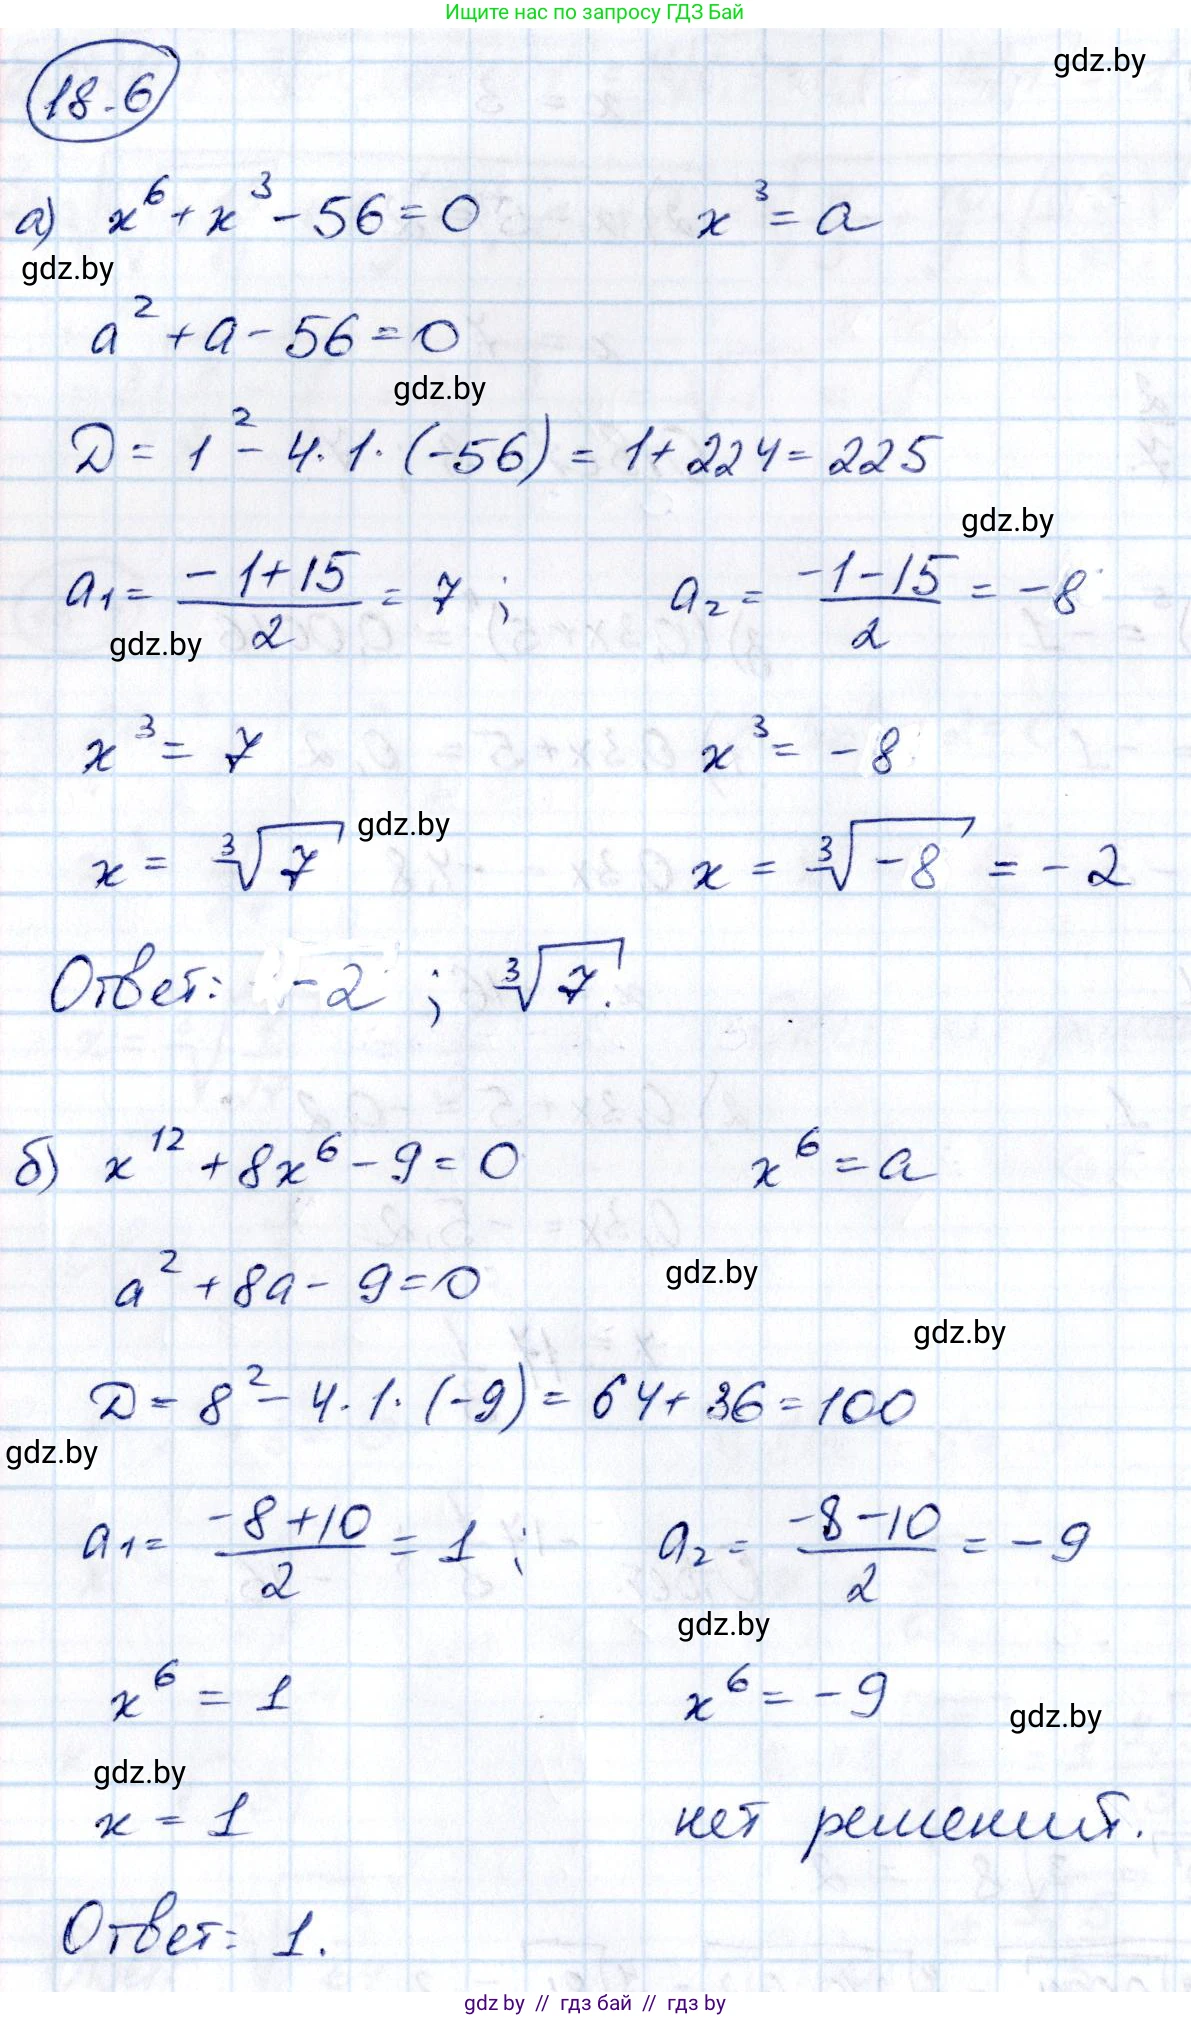 Ищите нас по запросу ГДЗ Бай
18.6
gdz.by
а) x⁶ + x³ - 56 = 0    x³ = a
gdz.by
a² + a - 56 = 0
gdz.by
Д = 1² - 4·1·(-56) = 1 + 224 = 225
gdz.by
a₁ = (-1+15)/2 = 7 ;    a₂ = (-1-15)/2 = -8
gdz.by
x³ = 7    x³ = -8
gdz.by
x = ∛7    x = ∛-8 = -2
Ответ: -2 ; ∛7.
б) x¹² + 8x⁶ - 9 = 0    x⁶ = a
gdz.by
a² + 8a - 9 = 0
gdz.by
Д = 8² - 4·1·(-9) = 64 + 36 = 100
gdz.by
a₁ = (-8+10)/2 = 1 ;    a₂ = (-8-10)/2 = -9
gdz.by
x⁶ = 1    x⁶ = -9
gdz.by
gdz.by
x = 1    нет решений.
Ответ: 1.
gdz by // гдз бай // гдз by